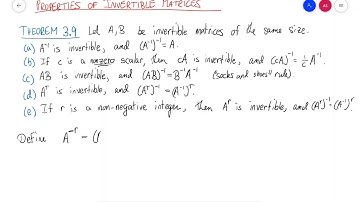 PROPERTIES OF INVERTIBLE MATRICES
THEOREM 3.9 Let A, B be invertible matrices of the same size.
(a) A⁻¹ is invertible, and (A⁻¹)⁻¹ = A.
(b) If c is a nonzero scalar, then cA is invertible, and (cA)⁻¹ = 1/c A⁻¹.
(c) AB is invertible, and (AB)⁻¹ = B⁻¹A⁻¹ (socks and shoes rule).
(d) Aᵀ is invertible, and (Aᵀ)⁻¹ = (A⁻¹)ᵀ.
(e) If r is a non-negative integer, then Aʳ is invertible, and (Aʳ)⁻¹ = (A⁻¹)ʳ
Define A⁻ʳ = (